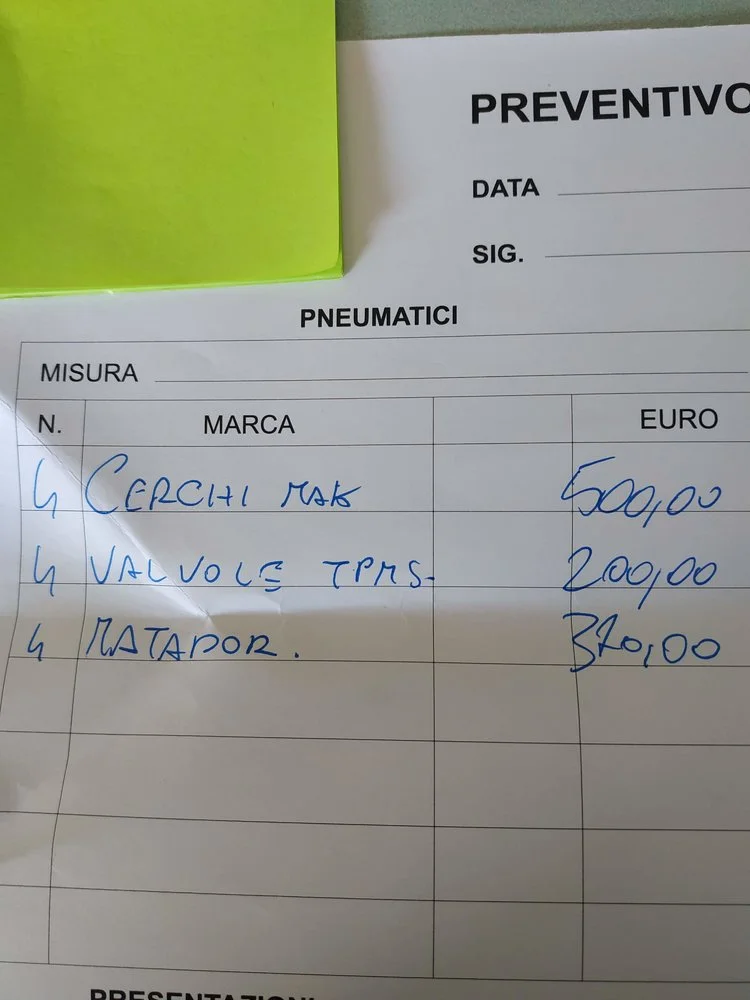 PREVENTIVO
DATA
SIG.
PNEUMATICI
MISURA
N. MARCA EURO
4 CERCHI MAK 500,00
4 VALVOLE TPMS 200,00
4 MATADOR. 370,00
PRESENTAZIONI